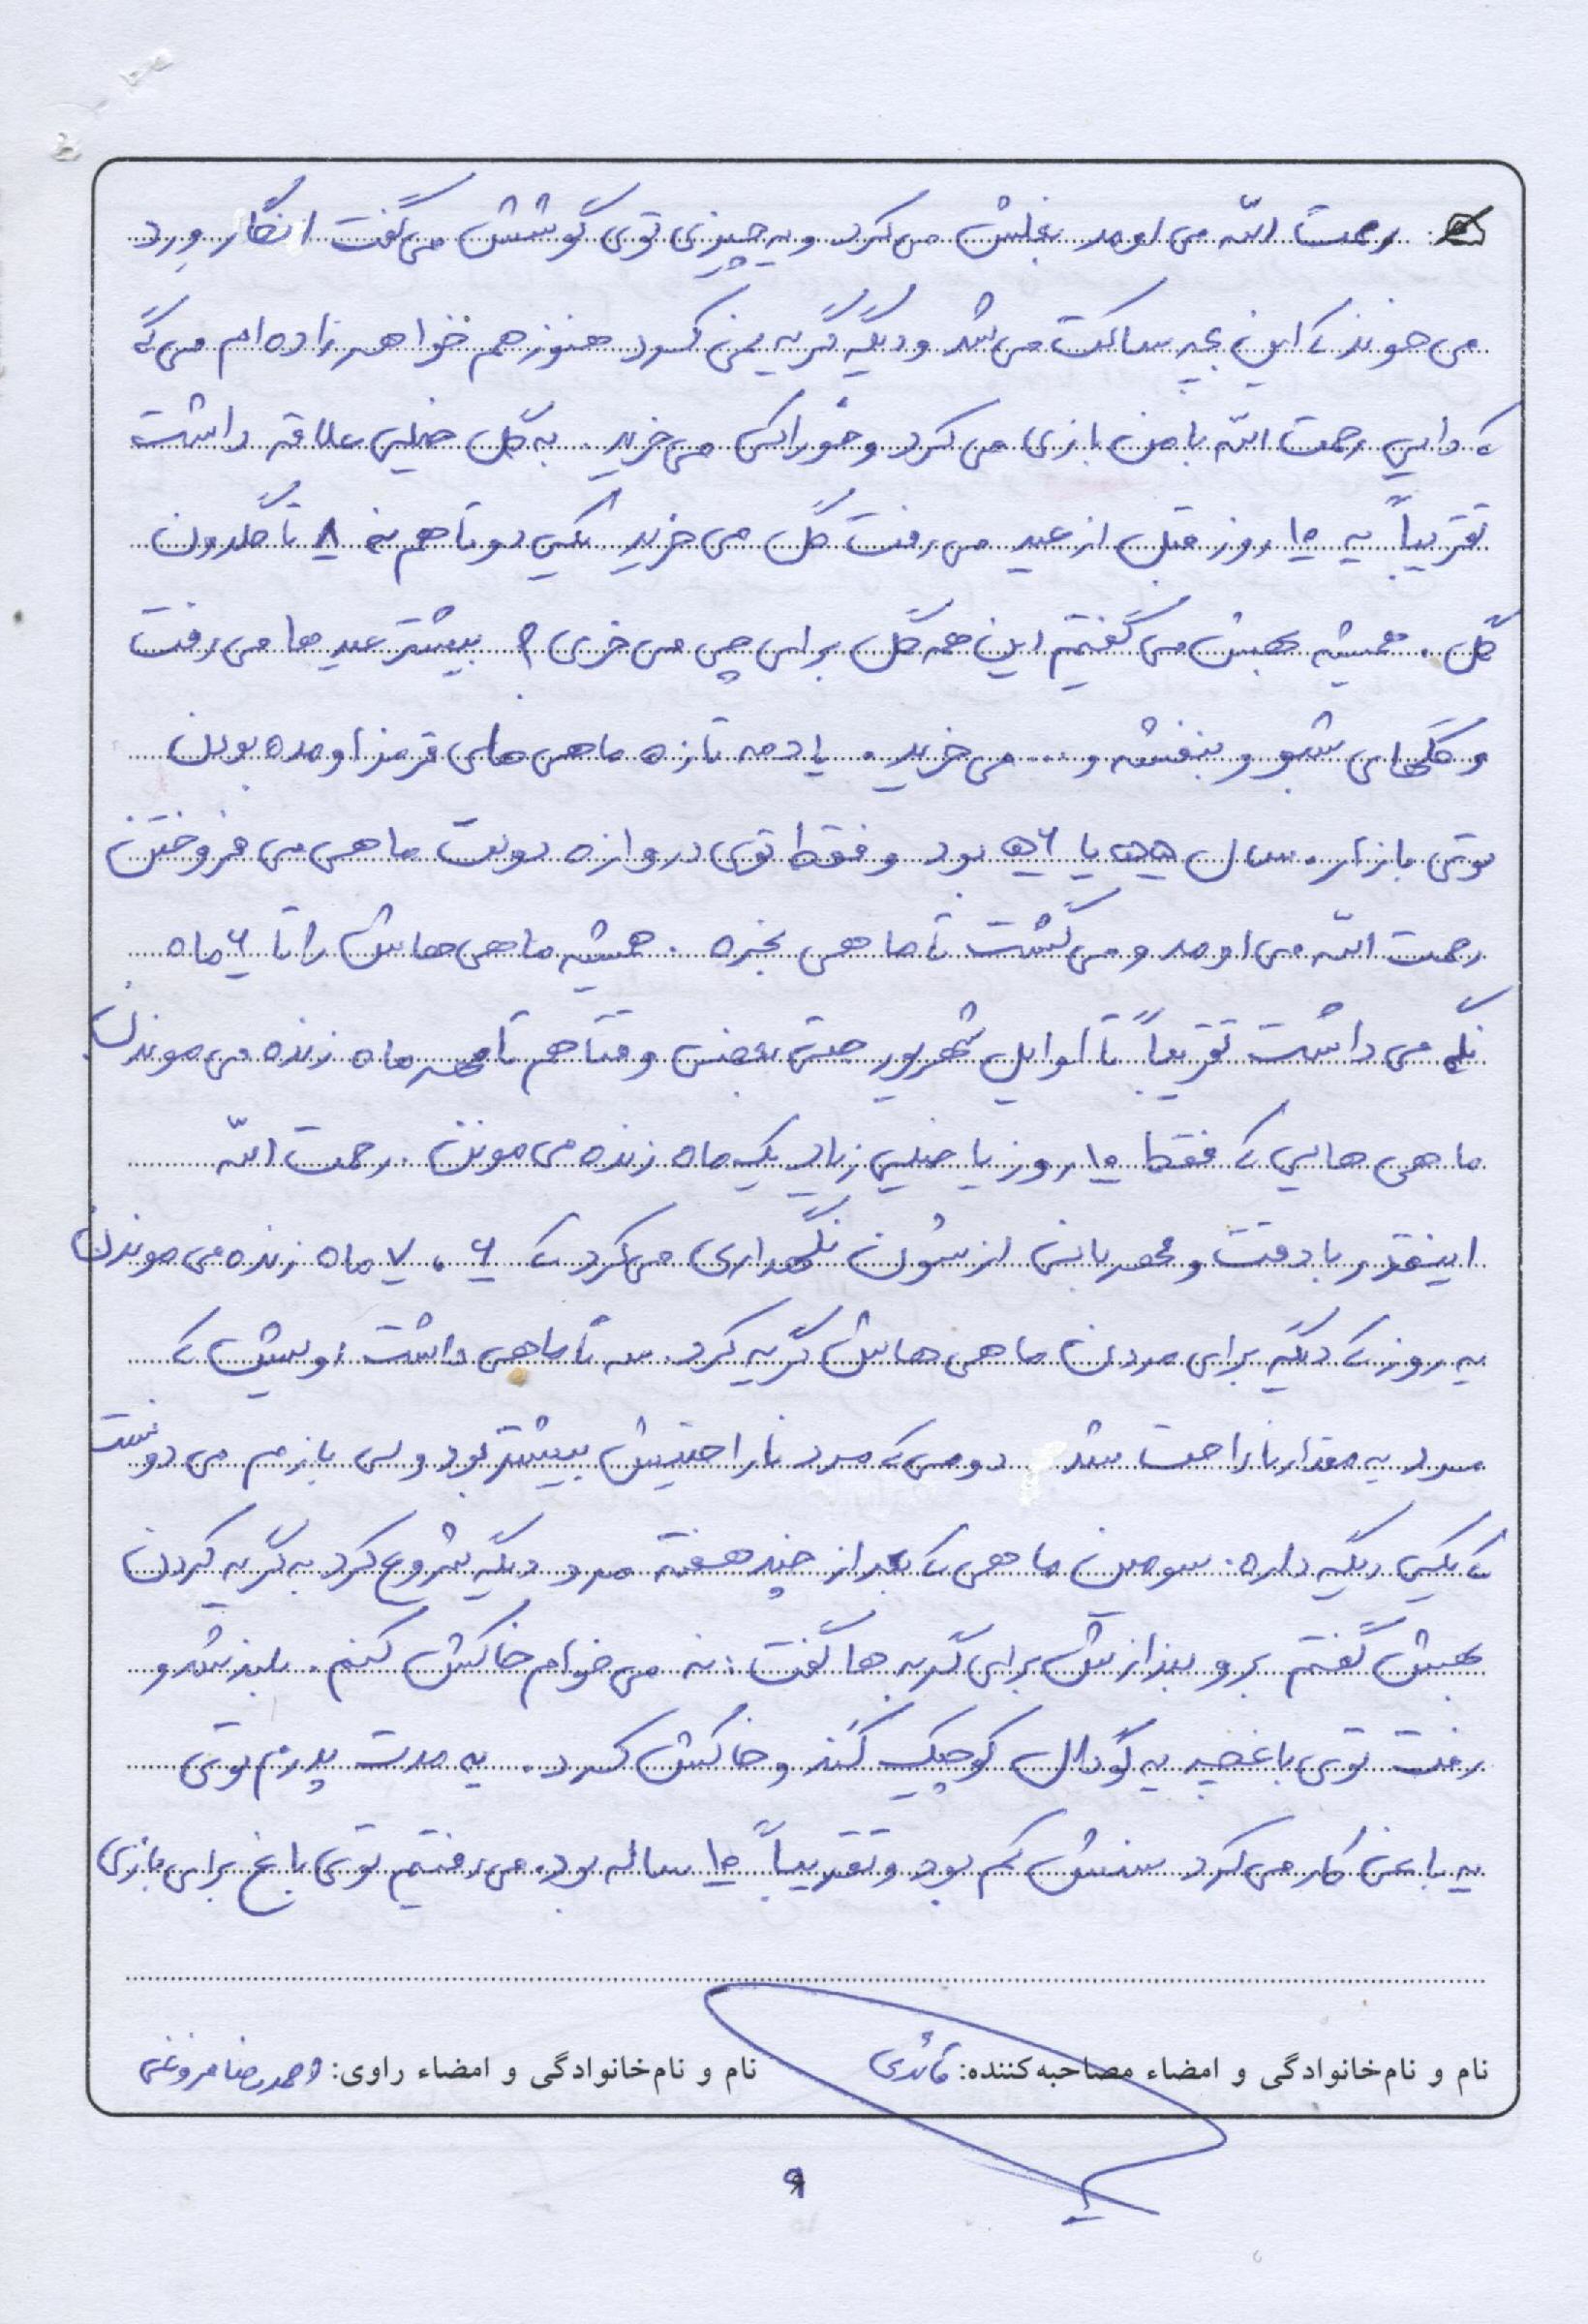 رحمت الله می اومد بغلش می کرد و یه چیزی توی گوشش می گفت انگار وِرد
می خوند که این بچه ساکت می شد و دیگه گریه نمی کرد هنوز هم خواهرزاده ام می گه
که دایی رحمت الله با من بازی می کرد و خوراکی می خرید. به گل خیلی علاقه داشت
تقریباً یه ۱۵ روز قبل از عید می رفت گل می خرید یکی دو تا هم نه ۸ تا گلدون
گل. همیشه بهش می گفتیم این همه گل برای چی می خری؟ بیشتر عیدها می رفت
و گلهای شببو و بنفشه و ... می خرید. یادمه تازه ماهی های قرمز اومده بودن
توی بازار. سال ۵۵ یا ۵۶ بود و فقط توی دروازه دولت ماهی می فروختن
رحمت الله می اومد و می گشت تا ماهی بخره. همیشه ماهی هاش را تا ۶ ماه
نگه می داشت تقریباً تا اوایل شهریور حتی بعضی وقتا هم تا مهر ماه زنده می موندن
ماهی هایی که فقط ۱۰ روز یا خیلی زیاد یک ماه زنده می مونن. رحمت الله
اینقدر با دقت و مهربانی ازشون نگهداری می کرد که ۶، ۷ ماه زنده می موندن
یه روز که دیگه برای مردن ماهی هاش گریه کرد. سه تا ماهی داشت اولیش که
مرد یه مقدار ناراحت شد دومی که مرد ناراحتیش بیشتر بود ولی بازم می دونست
که یکی دیگه داره. سومین ماهی که بعد از چند هفته مرد دیگه شروع کرد به گریه کردن
بهش گفتم برو بندازش برای گربه ها گفت: نه می خوام خاکش کنم. بلند شد و
رفت توی باغچه یه گودال کوچیک کند و خاکش کرد. یه مدت پدرم توی
یه باغی کار می کرد سنش کم بود و تقریباً ۱۰ ساله بود. می رفتیم توی باغ برای بازی
نام و نام‌خانوادگی و امضاء مصاحبه‌کننده: قائدی
نام و نام‌خانوادگی و امضاء راوی: احمدرضا فروغی
۹